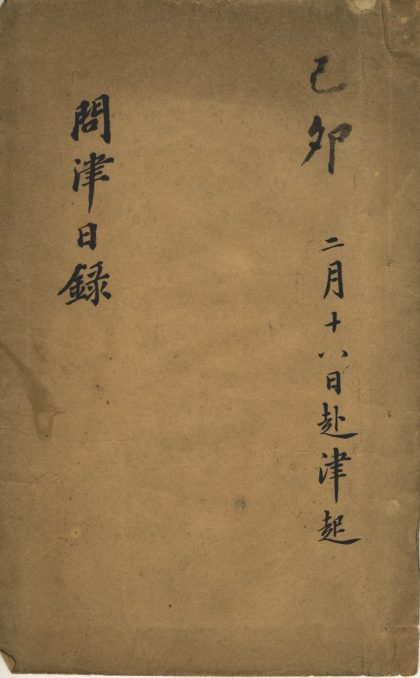 己卯 二月十八日赴津起
問津日録